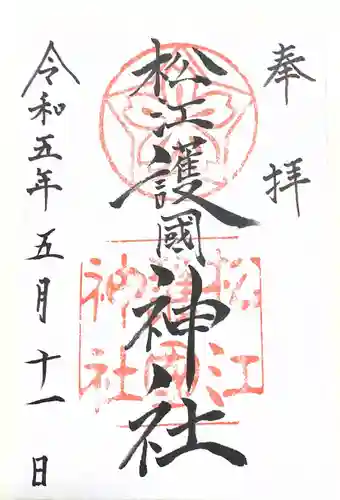 奉拝
松江護國神社
令和五年五月十一日
松江
護國
神社